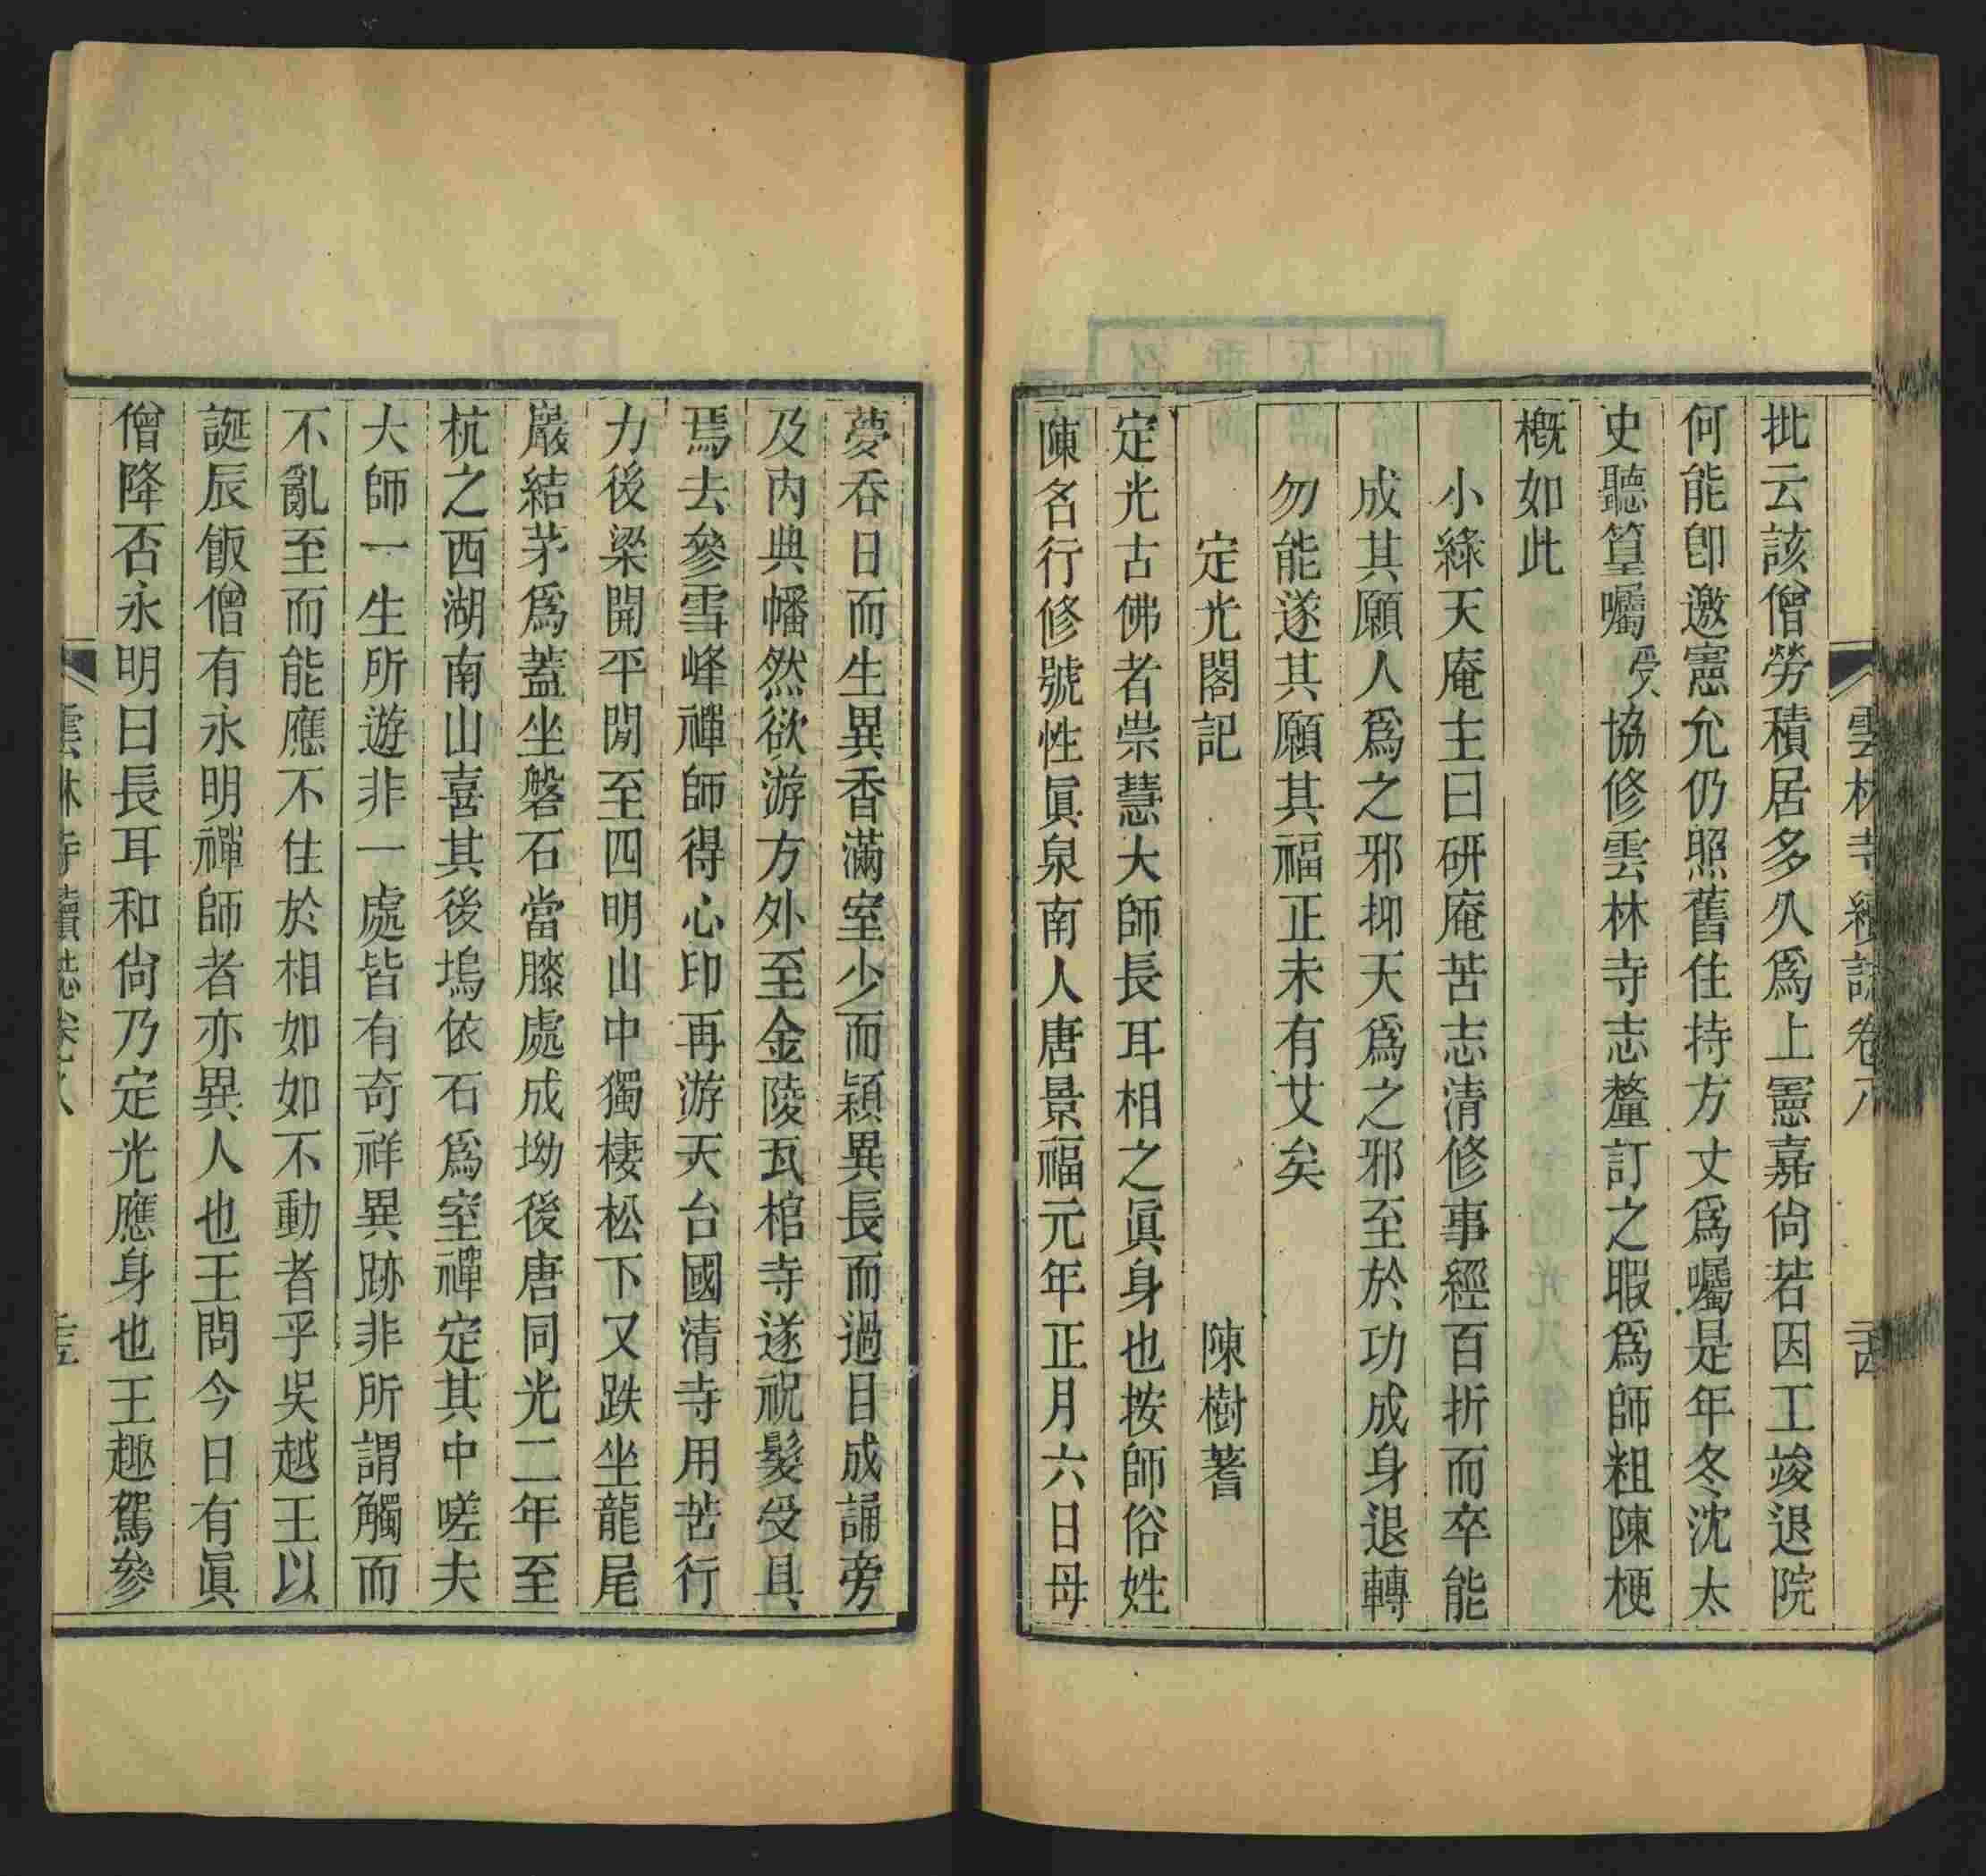 雲林寺續誌卷八
批云該僧勞積居多久爲上憲嘉尙若因工竣退院
何能卽邀憲允仍照舊住持方丈爲囑是年冬沈太
史聽篁囑受協修雲林寺志釐訂之暇爲師粗陳梗
概如此
小綠天庵主曰硏庵苦志清修事經百折而卒能
成其願人爲之邪抑天爲之邪至於功成身退轉
勿能遂其願其福正未有艾矣
定光閣記 陳樹蓍
定光古佛者崇慧大師長耳相之眞身也按師俗姓
陳名行修號性眞泉南人唐景福元年正月六日母
夢吞日而生異香滿室少而穎異長而過目成誦旁
及內典幡然欲游方外至金陵瓦棺寺遂祝髮受具
焉去參雪峰禪師得心印再游天台國清寺用苦行
力後梁開平閒至四明山中獨棲松下又趺坐龍尾
巖結茅爲蓋坐磐石當膝處成坳後唐同光二年至
杭之西湖南山喜其後塢依石爲室禪定其中嗟夫
大師一生所遊非一處皆有奇祥異跡非所謂觸而
不亂至而能應不住於相如如不動者乎吳越王以
誕辰飯僧有永明禪師者亦異人也王問今日有眞
僧降否永明曰長耳和尙乃定光應身也王趣駕參
雲林寺續誌卷八